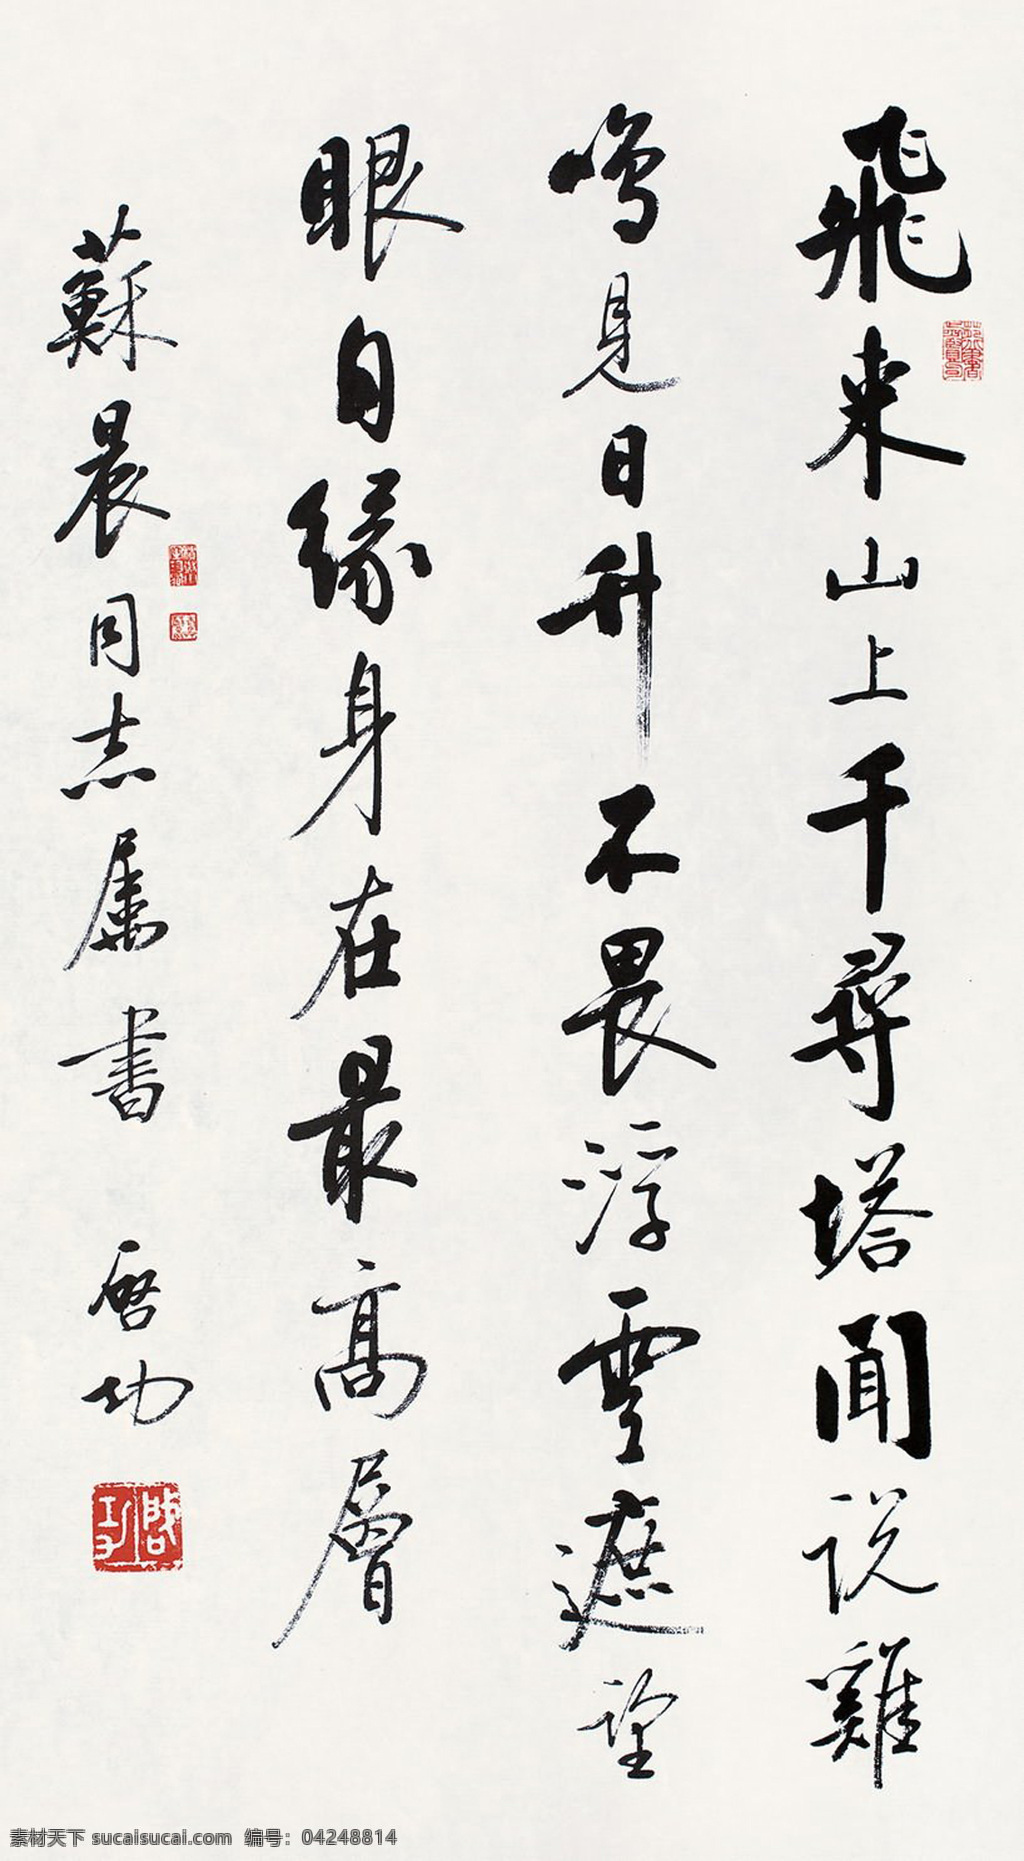 飛来山上千尋塔聞説雞
鳴見日升不畏浮雲遮望
眼自緣身在最高層
蘇晨同志屬書 啓功
啟功
素材天下 sucaisucai.com 编号：04248814